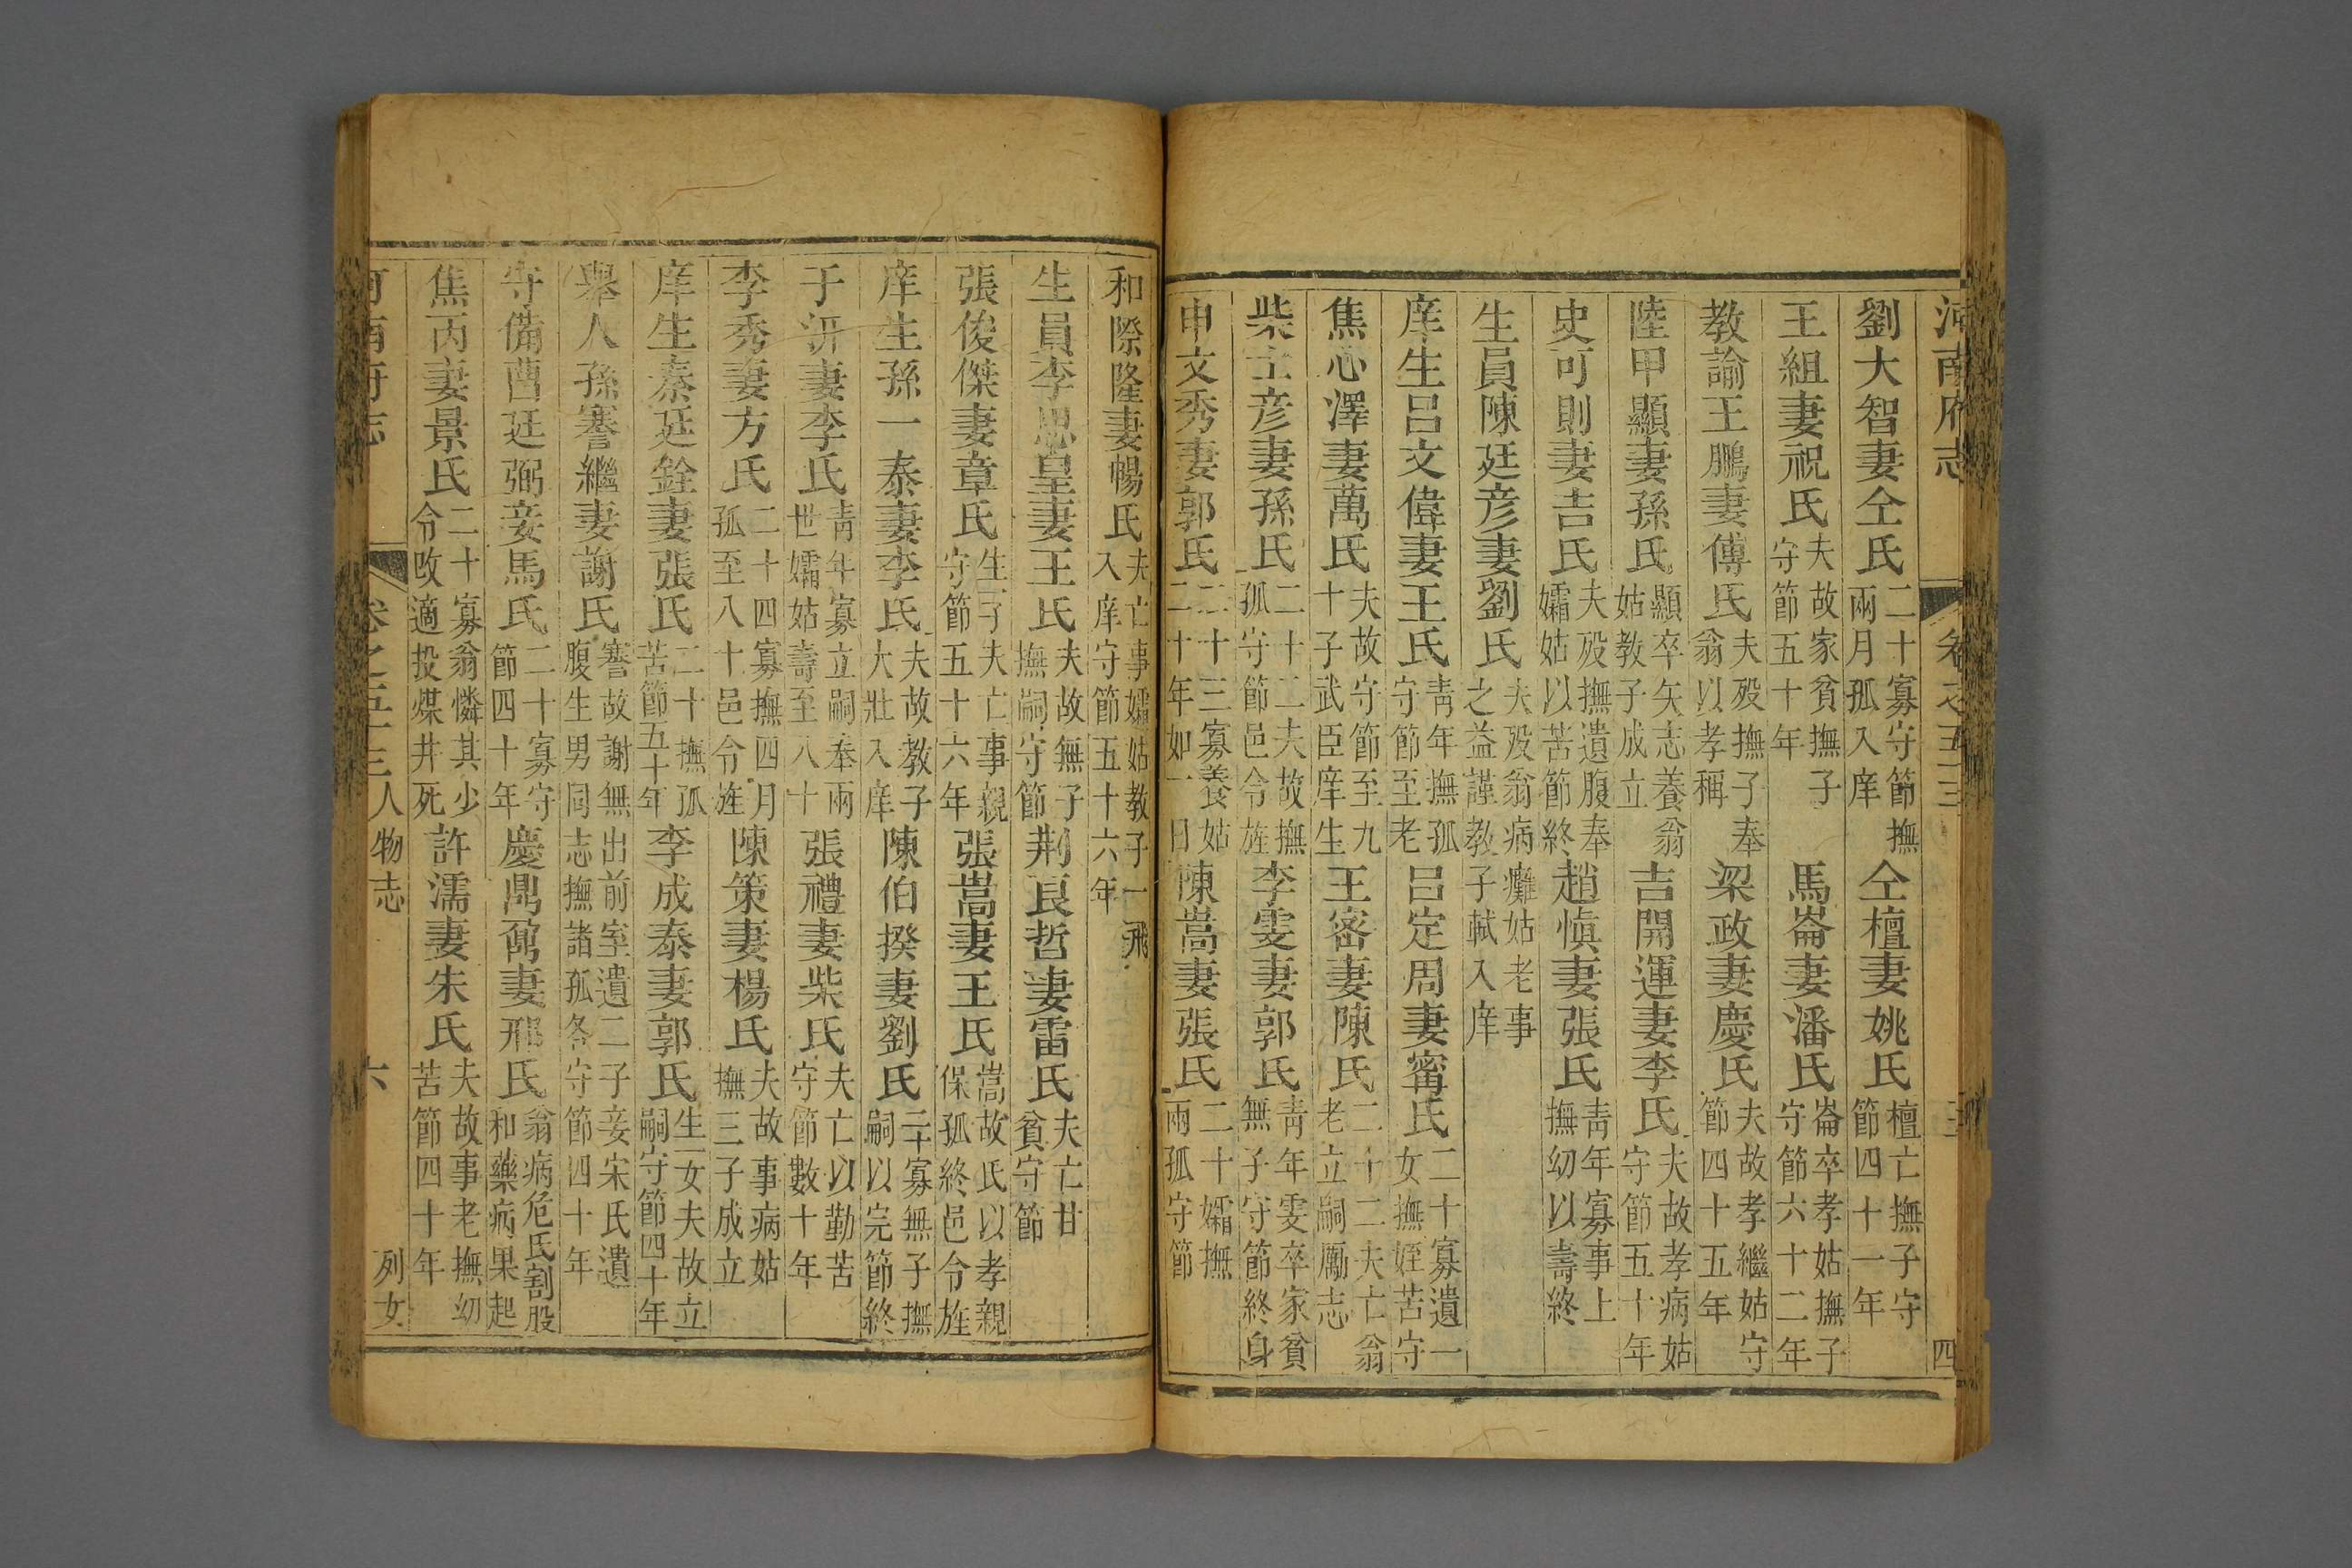 河南府志 卷之五十三 四
劉大智妻仝氏二十寡守節撫兩月孤入庠 仝檀妻姚氏檀亡撫子守節四十一年
王組妻祝氏夫故家貧撫子守節五十年 馬崙妻潘氏崙卒孝姑撫子守節六十二年
教諭王鵬妻傅氏夫歿撫子奉翁以孝稱 梁政妻慶氏夫故孝繼姑守節四十五年
陸甲顯妻孫氏顯卒矢志養翁姑教子成立 吉開運妻李氏夫故孝病姑守節五十年
史可則妻吉氏夫歿撫遺腹奉孀姑以苦節終 趙愼妻張氏青年寡事上撫幼以壽終
生員陳廷彦妻劉氏夫歿翁病癱姑老事之益謹教子軾入庠
庠生呂文偉妻王氏青年撫孤守節至老 呂定周妻甯氏二十寡遺一女撫姪苦守
焦心澤妻萬氏夫故守節至九十子武臣庠生 王密妻陳氏二十二夫亡翁老立嗣勵志
柴士彦妻孫氏二十二夫故撫孤守節邑令旌 李雯妻郭氏青年雯卒家貧無子守節終身
申文秀妻郭氏二十三寡養姑二十年如一日 陳嵩妻張氏二十孀撫兩孤守節
和際隆妻暢氏夫亡事孀姑教子一飛入庠守節五十六年
生員李思皇妻王氏夫故無子撫嗣守節 荆良哲妻雷氏夫亡甘貧守節
張俊傑妻章氏生子夫亡事親守節五十六年 張嵩妻王氏嵩故氏以孝親保孤終邑令旌
庠生孫一泰妻李氏夫故教子大壯入庠 陳伯揆妻劉氏二十寡無子撫嗣以完節終
于汧妻李氏青年寡立嗣奉兩世孀姑壽至八十 張禮妻柴氏夫亡以勤苦守節數十年
李秀妻方氏二十四寡撫四月孤至八十邑令旌 陳策妻楊氏夫故事病姑撫三子成立
庠生秦廷銓妻張氏二十撫孤苦節五十年 李成泰妻郭氏生一女夫故立嗣守節四十年
舉人孫謇繼妻謝氏謇故謝無出前室遺二子妾宋氏遺腹生男同志撫諸孤各守節四十年
守備曹廷弼妾馬氏二十寡守節四十年 慶鼎鼐妻邢氏翁病危氏割股和藥病果起
焦丙妻景氏二十寡翁憐其少令改適投煤井死 許濡妻朱氏夫故事老撫幼苦節四十年
河南府志 卷之五十三 人物志 六 列女